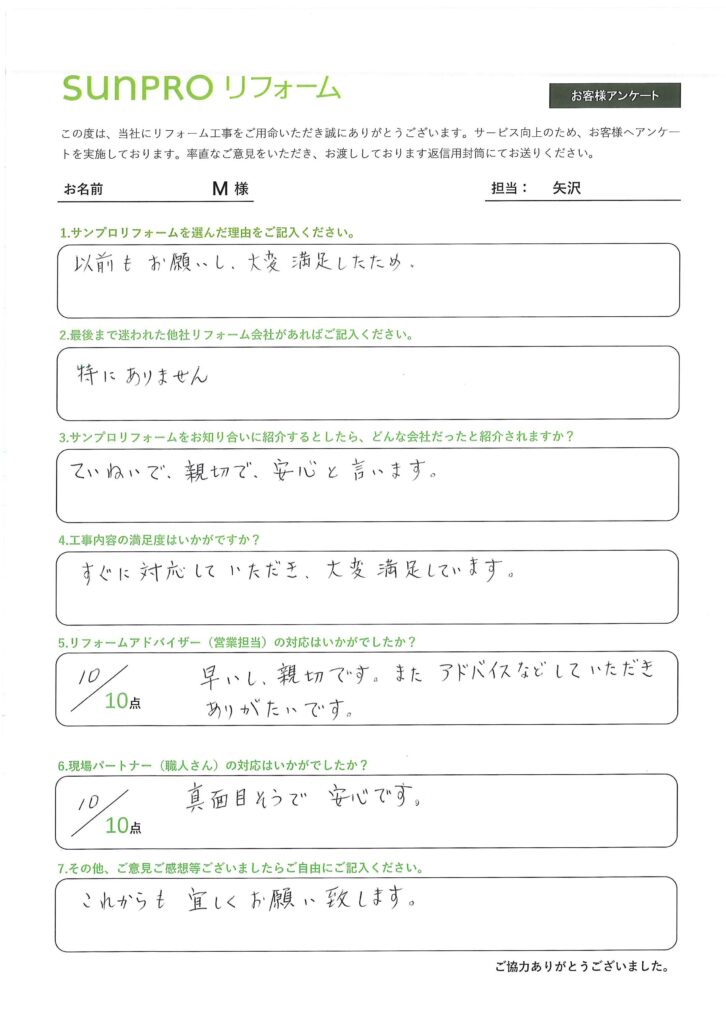 sunPRO リフォーム
お客様アンケート
この度は、当社にリフォーム工事をご用命いただき誠にありがとうございます。サービス向上のため、お客様へアンケー
トを実施しております。率直なご意見をいただき、お渡ししております返信用封筒にてお送りください。
お名前 M 様
担当： 矢沢
1.サンプロリフォームを選んだ理由をご記入ください。
以前も お願いし、大変 満足したため、
2.最後まで迷われた他社リフォーム会社があればご記入ください。
特に ありません
3.サンプロリフォームをお知り合いに紹介するとしたら、どんな会社だったと紹介されますか？
ていねいで、親切で、安心と言います。
4.工事内容の満足度はいかがですか？
すぐに対応していただき、大変満足しています。
5.リフォームアドバイザー（営業担当）の対応はいかがでしたか？
10/10点
早いし、親切です。また アドバイスなどしていただき
ありがたいです。
6.現場パートナー（職人さん）の対応はいかがでしたか？
10/10点
真面目そうで 安心です。
7.その他、ご意見ご感想等ございましたらご自由にご記入ください。
これからも 宜しくお願い致します。
ご協力ありがとうございました。